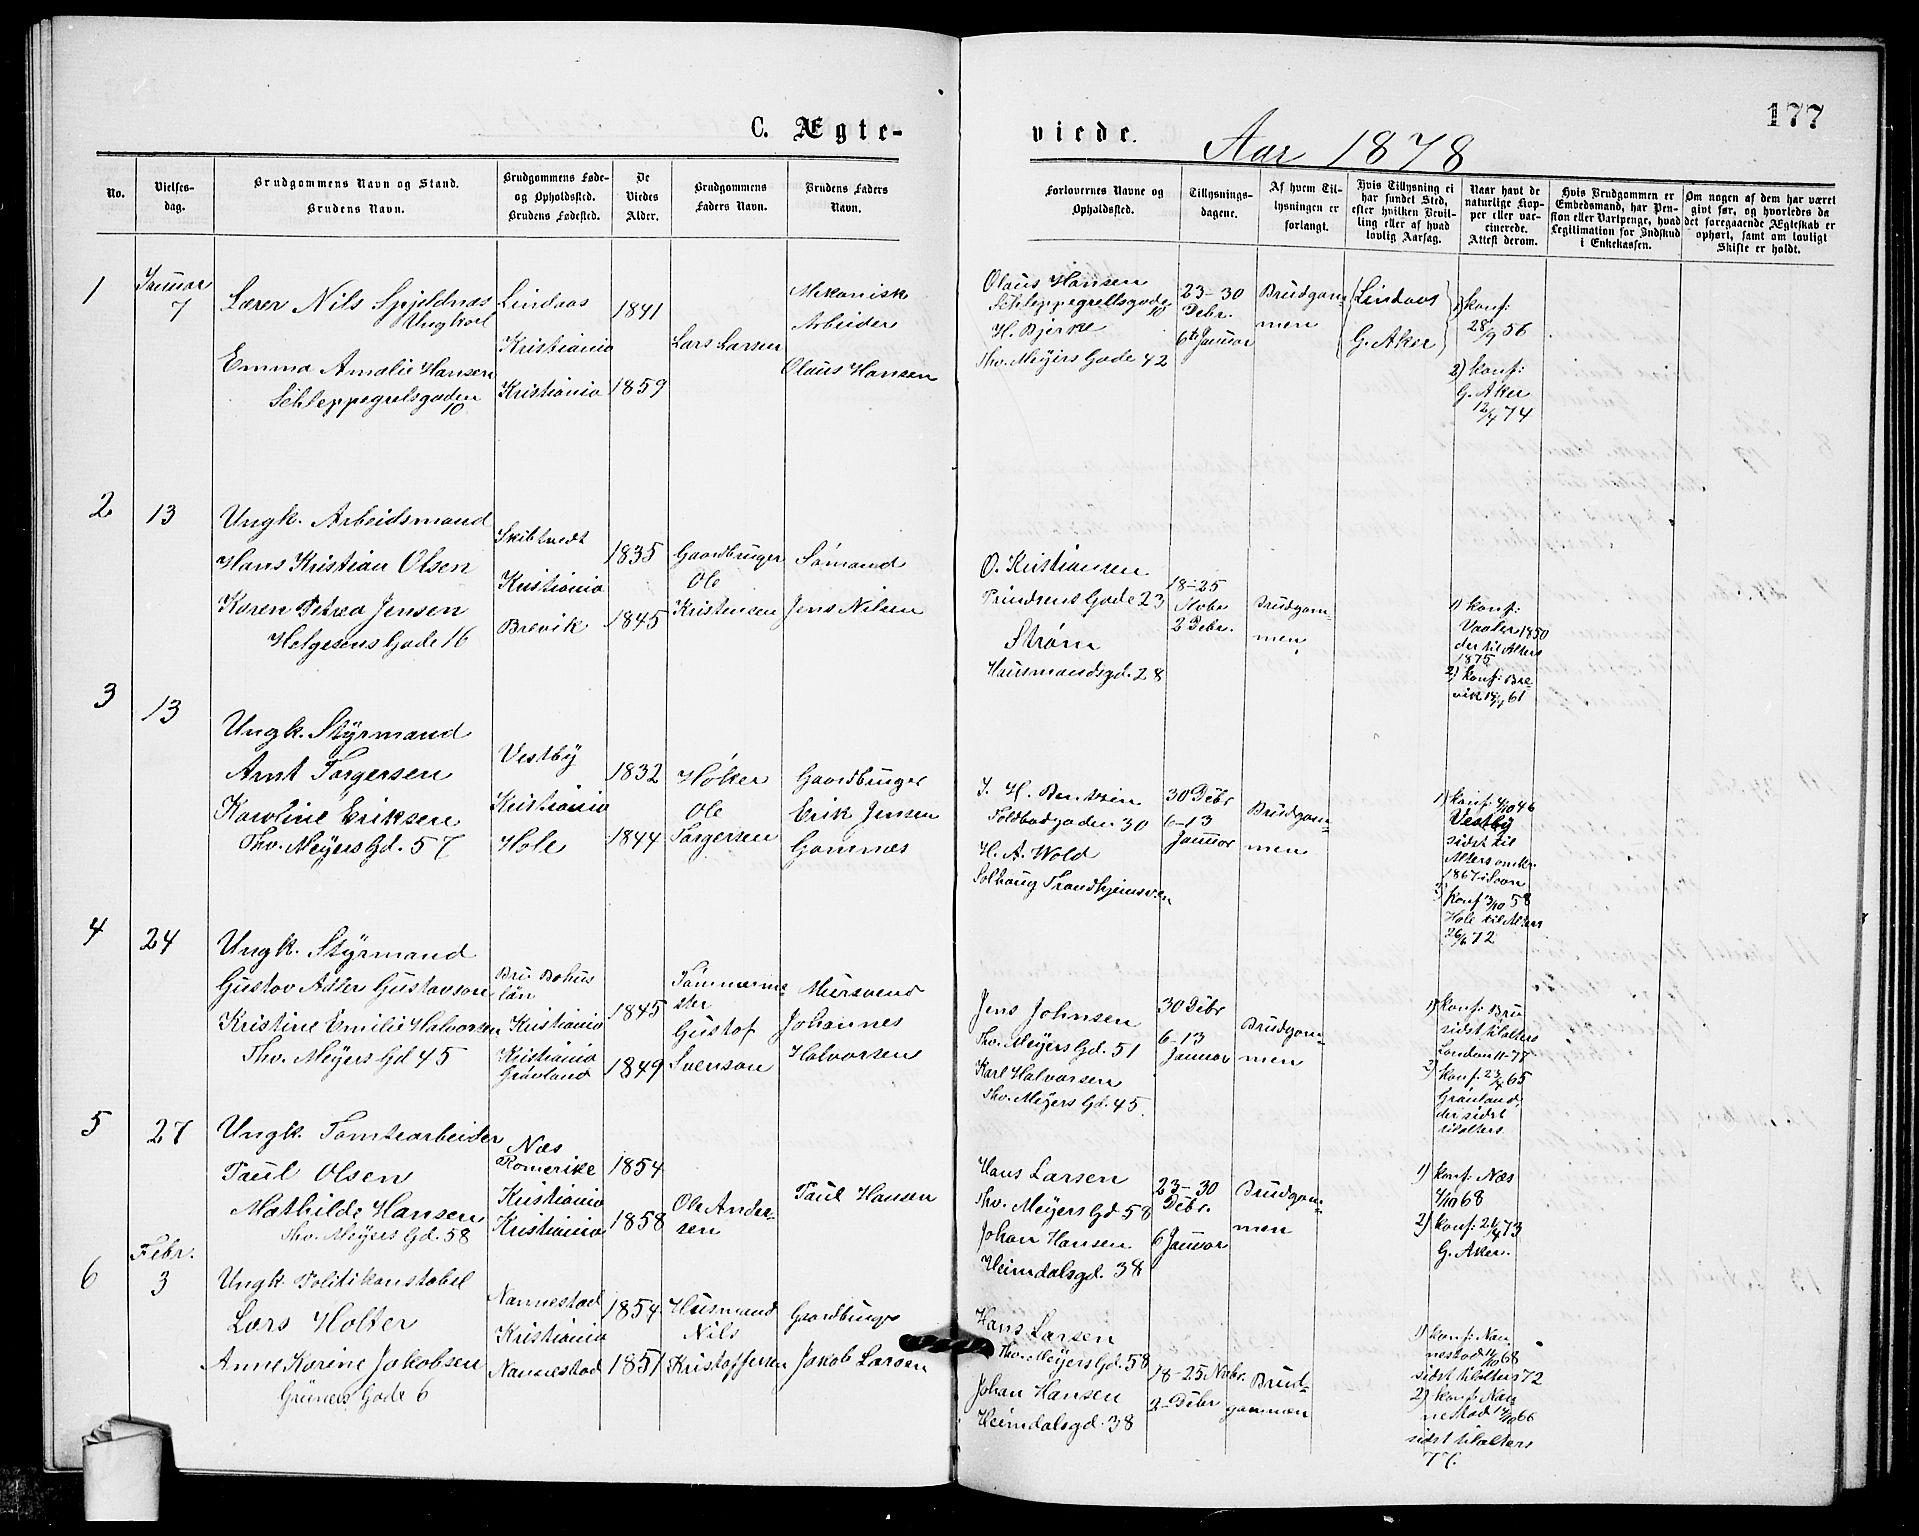 177
C. Ægte-
viede.
Aar 1878
No.
Vielses-
dag.
Brudgommens Navn og Stand.
Brudens Navn.
Brudgommens Føde-
og Opholdssted.
Brudens Fødested.
De
Viedes
Alder.
Brudgommens
Faders Navn.
Brudens Faders
Navn.
Forlovernes Navne og
Opholdssted.
Tillysnings-
dagene.
Af hvem Til-
lysningen er
forlangt.
Hvis Tillysning ei
har fundet Sted,
efter hvilken Bevil-
ling eller af hvad
lovlig Aarsag.
Naar havt de
naturlige Kop-
per eller vac-
cinerede.
Attest derom.
Hvis Brudgommen er
Embedsmand, har Pen-
sion eller Vartpenge, hvad
Legitimation for Indskud
i Enkekassen.
Om nogen af dem har været
gift før, og hvorledes da
det foregaaende Ægteskab er
ophørt, samt om lovligt
Skifte er holdt.
1
Januar
7
Lærer Nils Spjeldnæs
Ungkarl
Emma Amalie Hansen
Schleppegrelsgaden
10
Lindaas
Kristiania
Kristiania
1841
1859
Lars Larsen
Mekanisk
Arbeider
Olaus Hansen
Olaus Hansen
Schleppegrellsgade
10
H. Bjerke
Thv. Meyers Gade 42
23-30
Debr.
6te Januar
Brudgom-
men
Lindaas
G. Aker
1) konf:
28/9 56
2) konf:
G. Aker
12/4 74
2
13
Ungk. Arbeidsmand
Hans Kristian Olsen
Karen Petrea Jensen
Helgesens Gade 16
Skibtvedt
Kristiania
Brevik
1835
1845
Gaardbruger
Ole
Kristensen
Sømand
Jens Nilsen
O. Kristiansen
Prindsens Gade 23
Strøm
Hausmandsgd. 28
18-25
Nobr
2 Debr.
Brudgom-
men
1) konf:
Vaaler 1850
der til Alters
1875
2) konf: Bre
vik 61
3
13
Ungk. Styrmand
Arnt Torgersen
Karoline Eriksen
Thv. Meyers Gd. 57
Vestby
Kristiania
Hole
1832
1844
Høker
Ole
Torgersen
Gaardbruger
Erik Jensen
Gomnæs
J. H. Berntzen
Toldbodgaden 30
H. A. Wold
Solhaug Trondhjemsveien
30 Debr
6-13
Januar
Brudgom-
men
1) konf. 4/10 46
Vestby
sidst til
Alters omkr.
1867 i Soon
2) konf 3/10 58
Hole til Alters
26/6 72
4
24
Ungk. Styrmand
Gustav Adler Gustavson
Kristine Emilie Halvorsen
Thv. Meyers Gd 45
Bru Bohus
län
Kristiania
Kristiania
Grønland
1845
1849
Tømmerme-
ster
Gustof
Svenson
Mursvend
Johannes
Halvorsen
Jens Johnsen
Thv. Meyers Gd. 51
Karl Halvorsen
Thv. Meyers Gd. 45.
30 Debr
6-13
Januar
Brudgom-
men
1) konf: Bru
sidst tilalters
London 11-77
2) konf. 23/4 65
Grønland,
der sidst
tilalters.
5
27
Ungk. Tomtearbeider
Paul Olsen
Mathilde Hansen
Thv. Meyers Gd. 58
Næs
Romerike
Kristiania
Kristiania
1854
1858
Ole Ander-
sen
Paul Hansen
Hans Larsen
Thv. Meyers Gd 58
Johan Hansen
Heimdalsgd. 38
23-30
Debr.
6 Januar
Brudgom-
men
1) konf: Næs
4/10 68
2) konf: 20/4 73
G. Aker.
6
Febr.
3
Ungk. Politikonstabel
Lars Holter
Anne Karine Jakobsen
Grüners Gade 6
Nannestad
Kristiania
Nannestad
1854
1851
Husmand
Nils
Kristoffersen
Gaardbruger
Jakob Larsen
Hans Larsen
Thv. Meyers Gd. 58
Johan Hansen
Heimdalsgd. 38
18-25 Nobr.
2 Debr
Brud-
gommen
1) konf: Nan
nestad 11/10 68
sidst tilalters 72
2) konf. Nan
nestad 14/10 66
sidst tilalters
77.